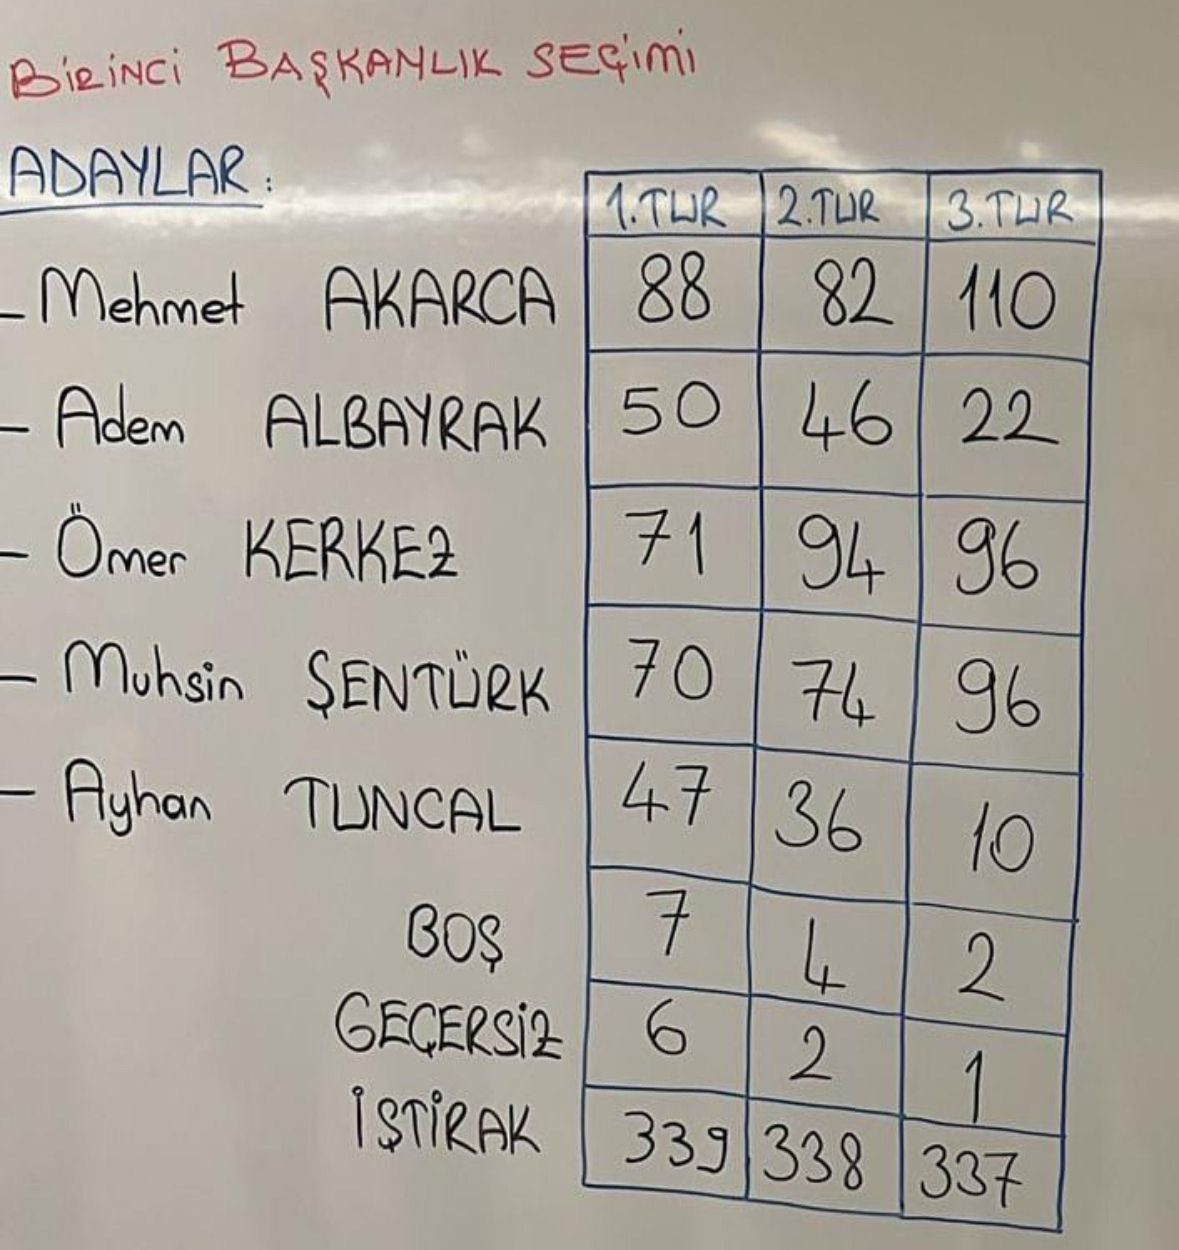 BİRİNCİ BAŞKANLIK SEÇİMİ
ADAYLAR:
1.TUR 2.TUR 3.TUR
- Mehmet AKARCA 88 82 110
- Adem ALBAYRAK 50 46 22
- Ömer KERKEZ 71 94 96
- Muhsin ŞENTÜRK 70 74 96
- Ayhan TUNCAL 47 36 10
BOŞ 7 4 2
GEÇERSİZ 6 2 1
İŞTİRAK 339 338 337